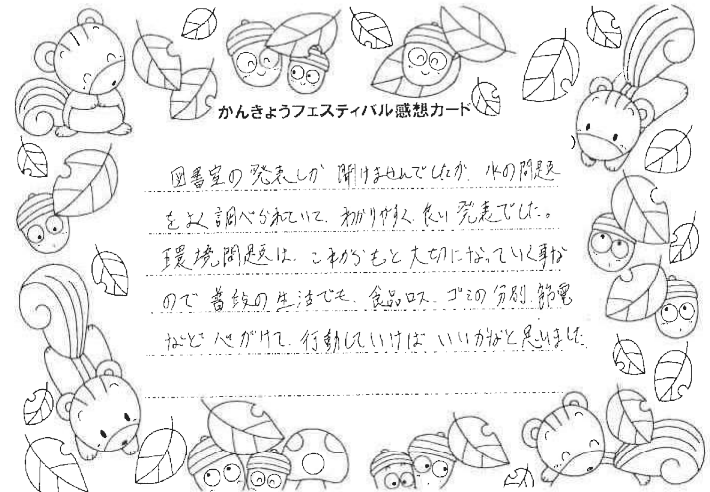 かんきょうフェスティバル感想カード
図書室の発表しか聞けませんでしたが、水の問題
をよく調べられていて、わかりやすく、良い発表でした。
環境問題は、これからもと大切になっていく事な
ので普段の生活でも、食品ロス、ゴミの分別、節電
など心がけて、行動していけばいいかなと思いました